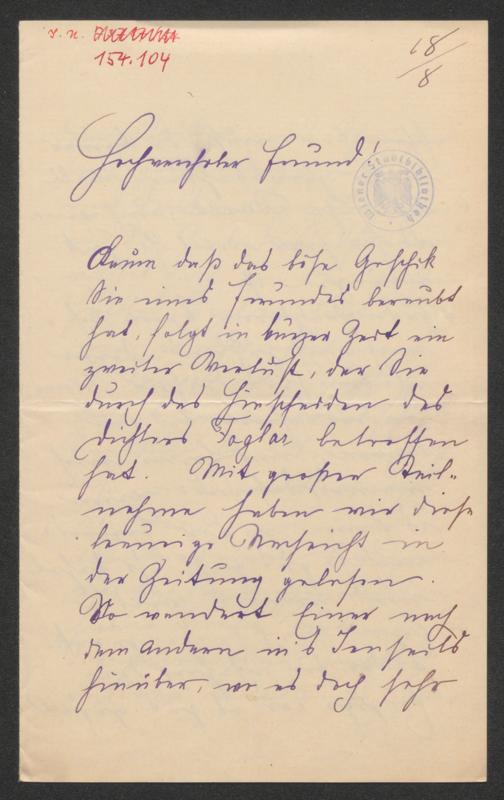 I. N.
154.104
18/8
Wiener Stadtbibliothek
Hochverehrter Freund!
Kaum daß das böse Geschik
Sie eines Freundes beraubt
hat, folgt in kurzer Zeit ein
zweiter Verlust, der Sie
durch das Hinscheiden des
Dichters Foglar betroffen
hat. Mit großer Teil-
nahme haben wir diese
traurige Nachricht in
der Zeitung gelesen.
So wandert Einer nach
dem Andern in's Jenseits
hinüber, wo es doch sehr